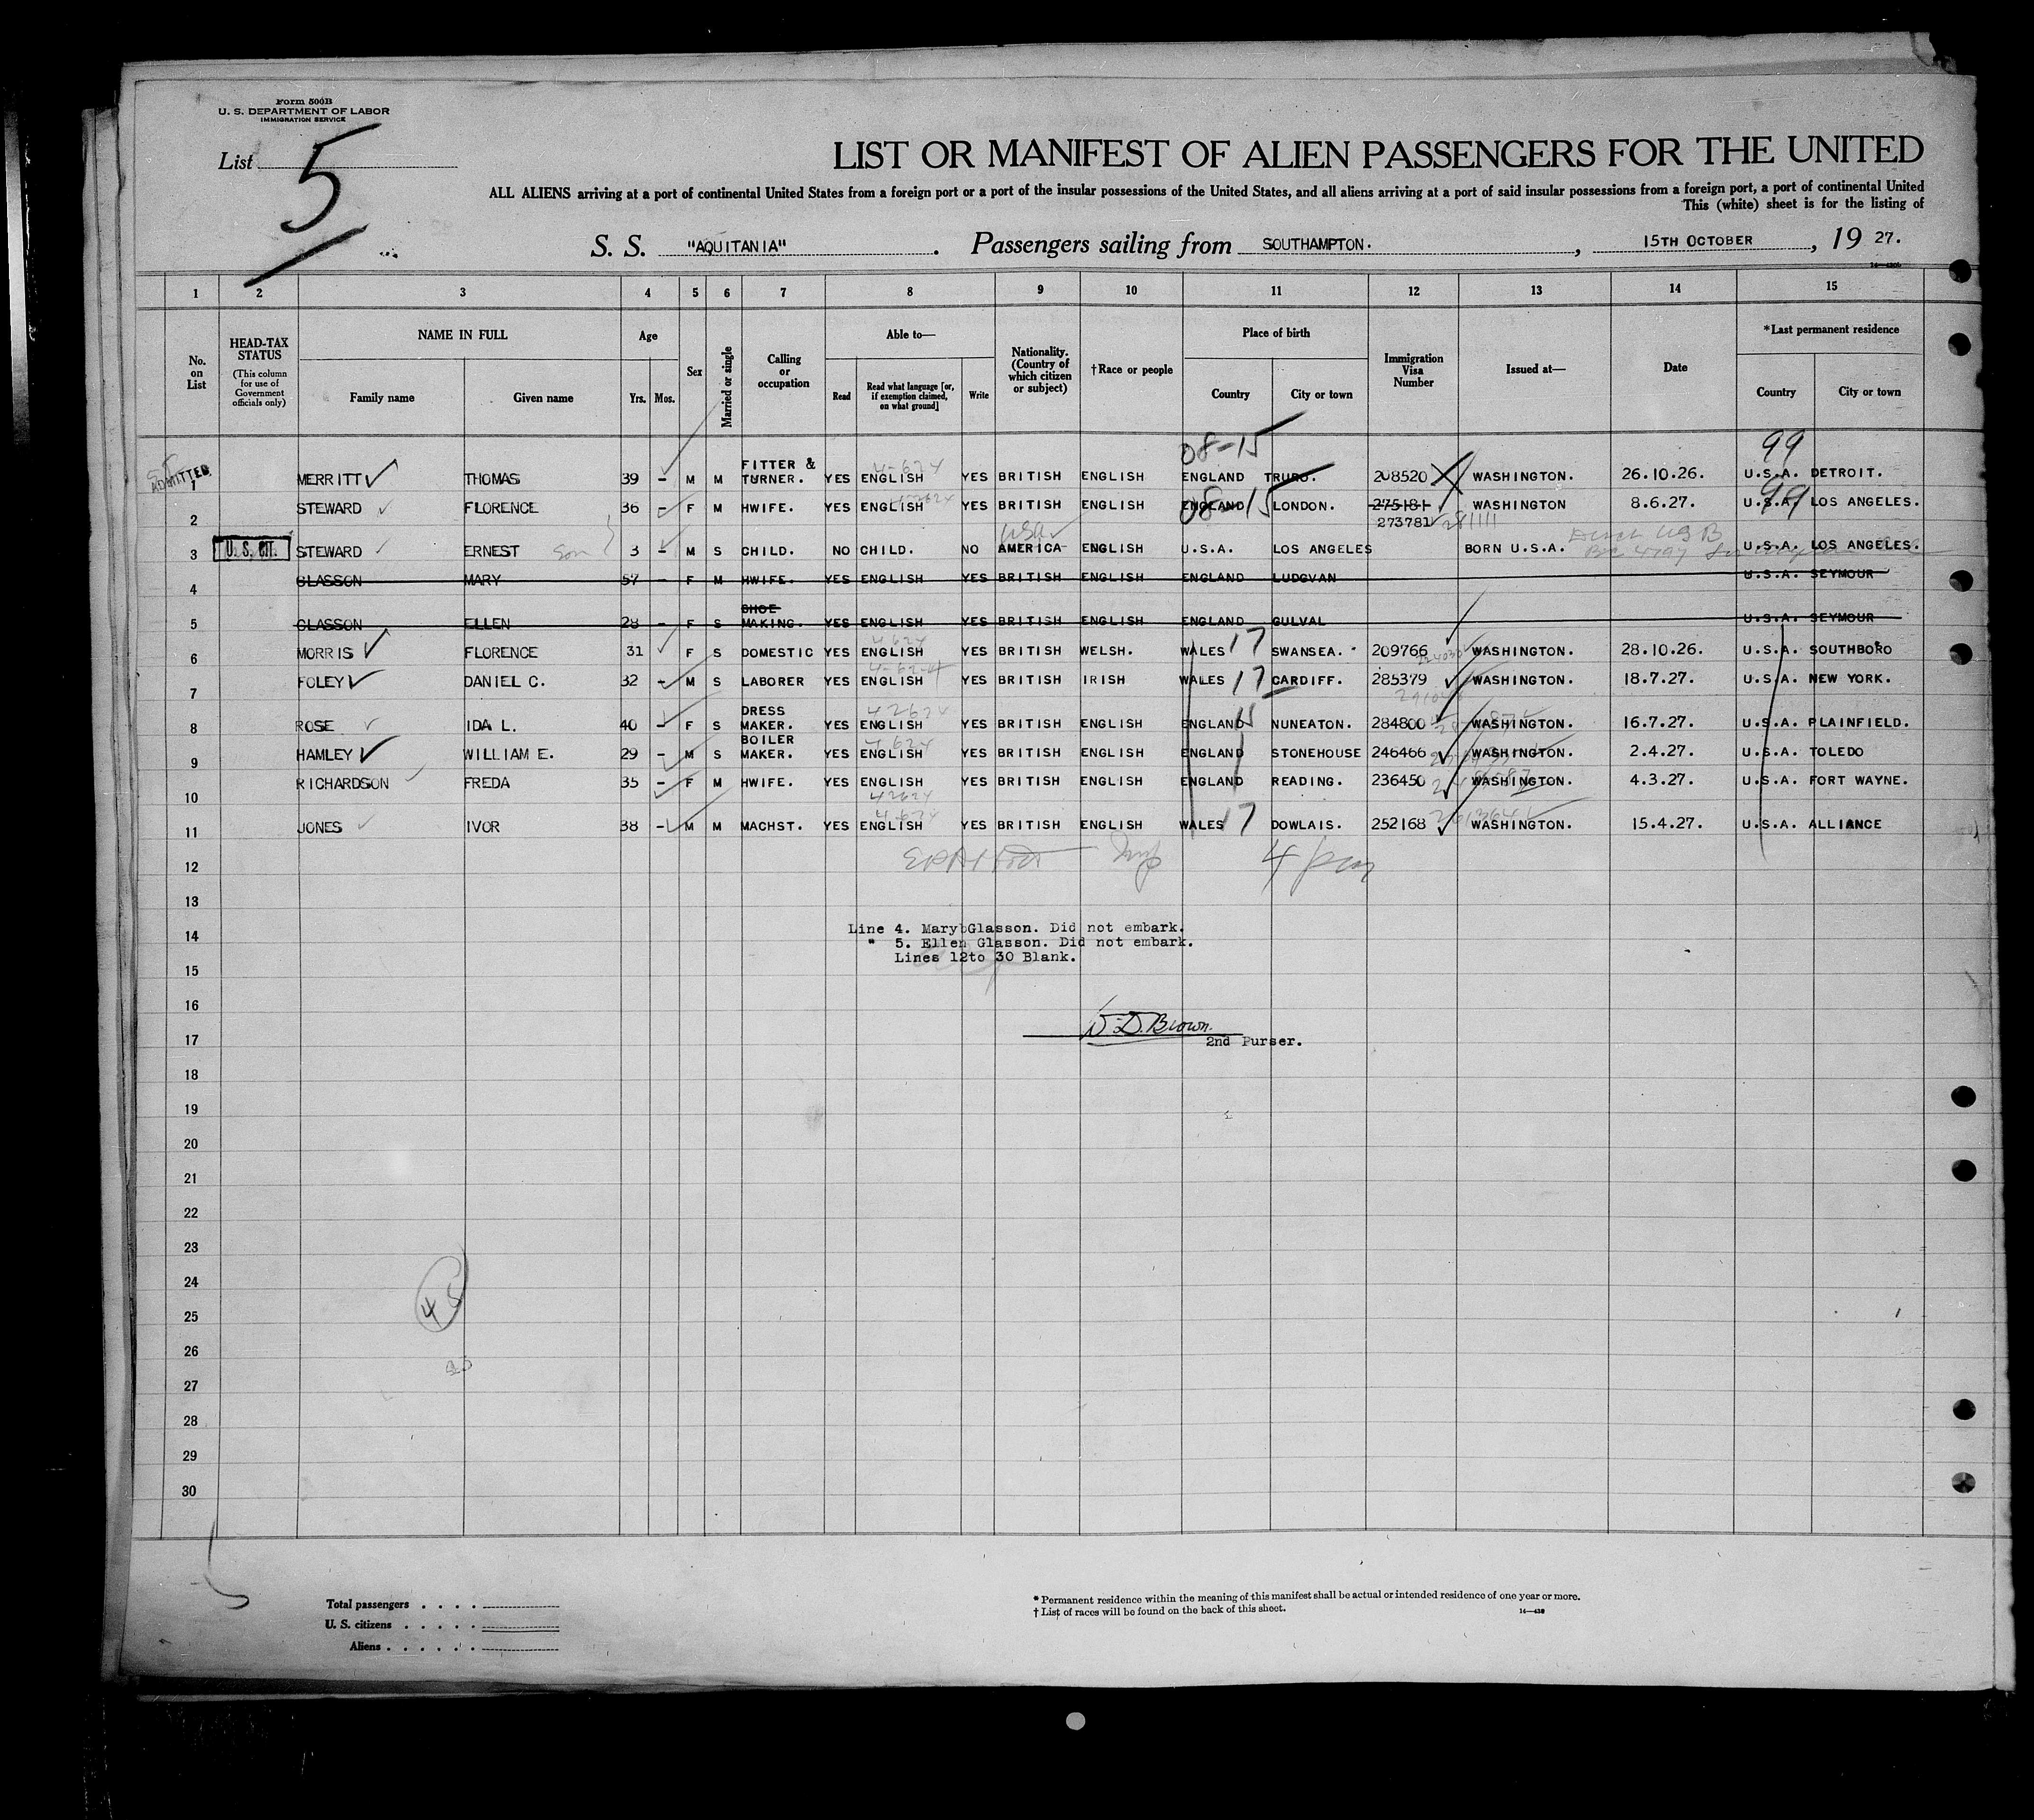 Form 500B
U. S. DEPARTMENT OF LABOR
IMMIGRATION SERVICE
List 5
LIST OR MANIFEST OF ALIEN PASSENGERS FOR THE UNITED
ALL ALIENS arriving at a port of continental United States from a foreign port or a port of the insular possessions of the United States, and all aliens arriving at a port of said insular possessions from a foreign port, a port of continental United
This (white) sheet is for the listing of
S. S. "AQUITANIA". Passengers sailing from SOUTHAMPTON., 15TH OCTOBER, 19 27.
1 2 3 4 5 6 7 8 9 10 11 12 13 14 15
No. on List
HEAD-TAX STATUS
(This column for use of Government officials only)
NAME IN FULL
Family name Given name
Age
Yrs. Mos.
Sex
Married or single
Calling or occupation
Able to—
Read
Read what language [or, if exemption claimed, on what ground]
Write
Nationality. (Country of which citizen or subject)
†Race or people
Place of birth
Country City or town
Immigration Visa Number
Issued at—
Date
*Last permanent residence
Country City or town
08-15 99
ADMITTED
1 MERRITT THOMAS 39 - M M FITTER & TURNER. YES ENGLISH YES BRITISH ENGLISH ENGLAND TRURO. 208520 WASHINGTON. 26.10.26. U.S.A. DETROIT.
4-624
2 STEWARD FLORENCE 36 - F M HWIFE. YES ENGLISH YES BRITISH ENGLISH ENGLAND LONDON. 275181 WASHINGTON 8.6.27. U.S.A. LOS ANGELES.
08-15 99
273781 281111
U.S. CIT.
USA
3 STEWARD ERNEST son 3 - M S CHILD. NO CHILD. NO AMERICA ENGLISH U.S.A. LOS ANGELES BORN U.S.A. U.S.A. LOS ANGELES.
4 GLASSON MARY 57 - F M HWIFE. YES ENGLISH YES BRITISH ENGLISH ENGLAND LUDGVAN U.S.A. SEYMOUR
5 GLASSON ELLEN 28 - F S SHOE MAKING. YES ENGLISH YES BRITISH ENGLISH ENGLAND GULVAL U.S.A. SEYMOUR
6 MORRIS FLORENCE 31 F S DOMESTIC YES ENGLISH YES BRITISH WELSH. WALES 17 SWANSEA. 209766 WASHINGTON. 28.10.26. U.S.A. SOUTHBORO
7 FOLEY DANIEL C. 32 - M S LABORER YES ENGLISH YES BRITISH IRISH WALES 17 CARDIFF. 285379 WASHINGTON. 18.7.27. U.S.A. NEW YORK.
8 ROSE IDA L. 40 - F S DRESS MAKER. YES ENGLISH YES BRITISH ENGLISH ENGLAND NUNEATON. 284800 WASHINGTON. 16.7.27. U.S.A. PLAINFIELD.
9 HAMLEY WILLIAM E. 29 - M S BOILER MAKER. YES ENGLISH YES BRITISH ENGLISH ENGLAND STONEHOUSE 246466 WASHINGTON. 2.4.27. U.S.A. TOLEDO
10 RICHARDSON FREDA 35 - F M HWIFE. YES ENGLISH YES BRITISH ENGLISH ENGLAND READING. 236450 WASHINGTON. 4.3.27. U.S.A. FORT WAYNE.
11 JONES IVOR 38 - M M MACHST. YES ENGLISH YES BRITISH ENGLISH WALES 17 DOWLAIS. 252168 WASHINGTON. 15.4.27. U.S.A. ALLIANCE
12
13
14
15
16
17
18
19
20
21
22
23
24
25
26
27
28
29
30
Line 4. Mary Glasson. Did not embark.
" 5. Ellen Glasson. Did not embark.
Lines 12to 30 Blank.
W. D. Brown.
2nd Purser.
Total passengers
U. S. citizens
Aliens
* Permanent residence within the meaning of this manifest shall be actual or intended residence of one year or more.
† List of races will be found on the back of this sheet.